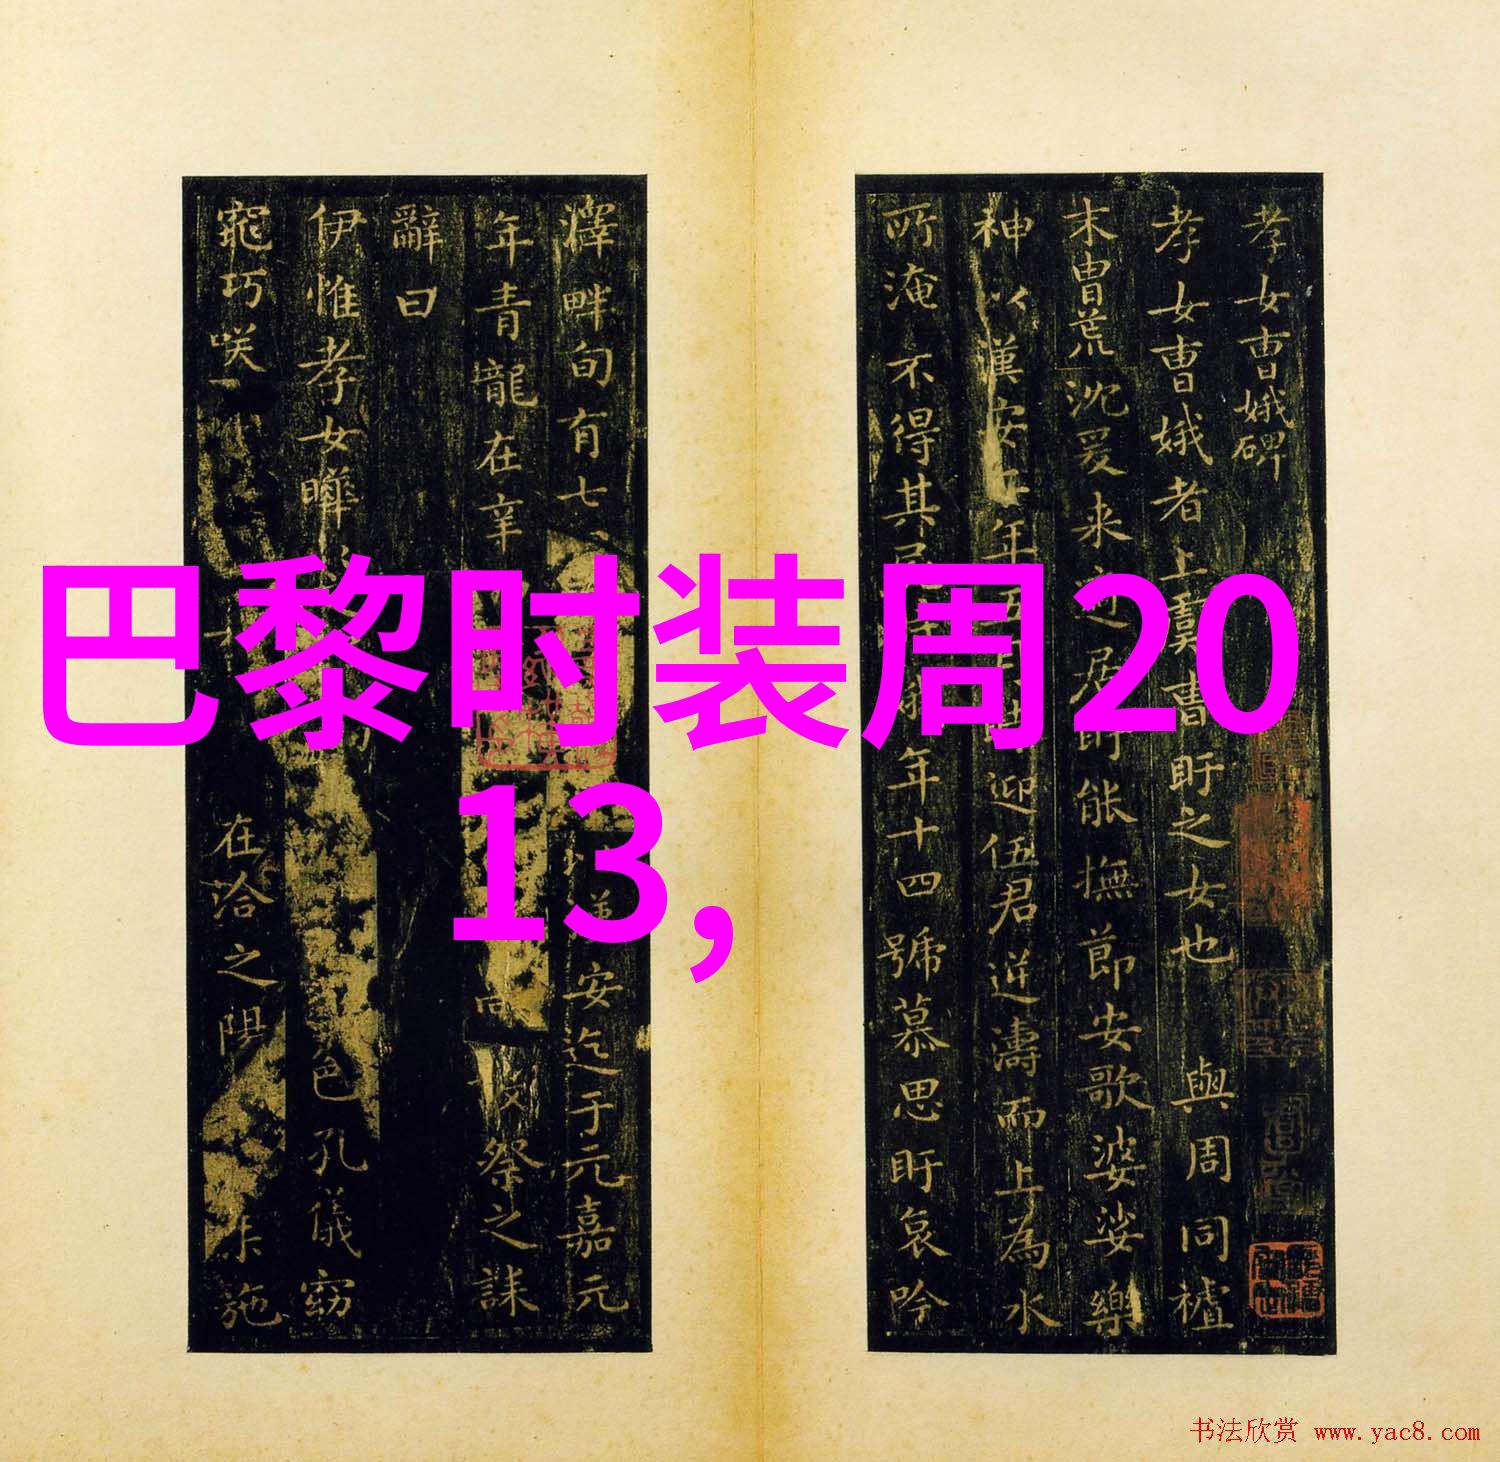 巴黎时装周20
13,
孝女曹娥碑
孝女曹娥者上虞曹盱之女也 與周同祖
末胄荒沈爰来適居 能撫節安歌婆娑樂
神以漢安 年五 時迎伍君逆濤而上為水
所淹不得其 年十四號慕思盱哀吟
澤畔旬有七 安迄于元嘉元
年青龍在辛 祭之誄
辭曰
伊惟孝女曄 色孔儀窈
窕巧咲 在洽之陽 施
书法欣赏 www.yac8.com